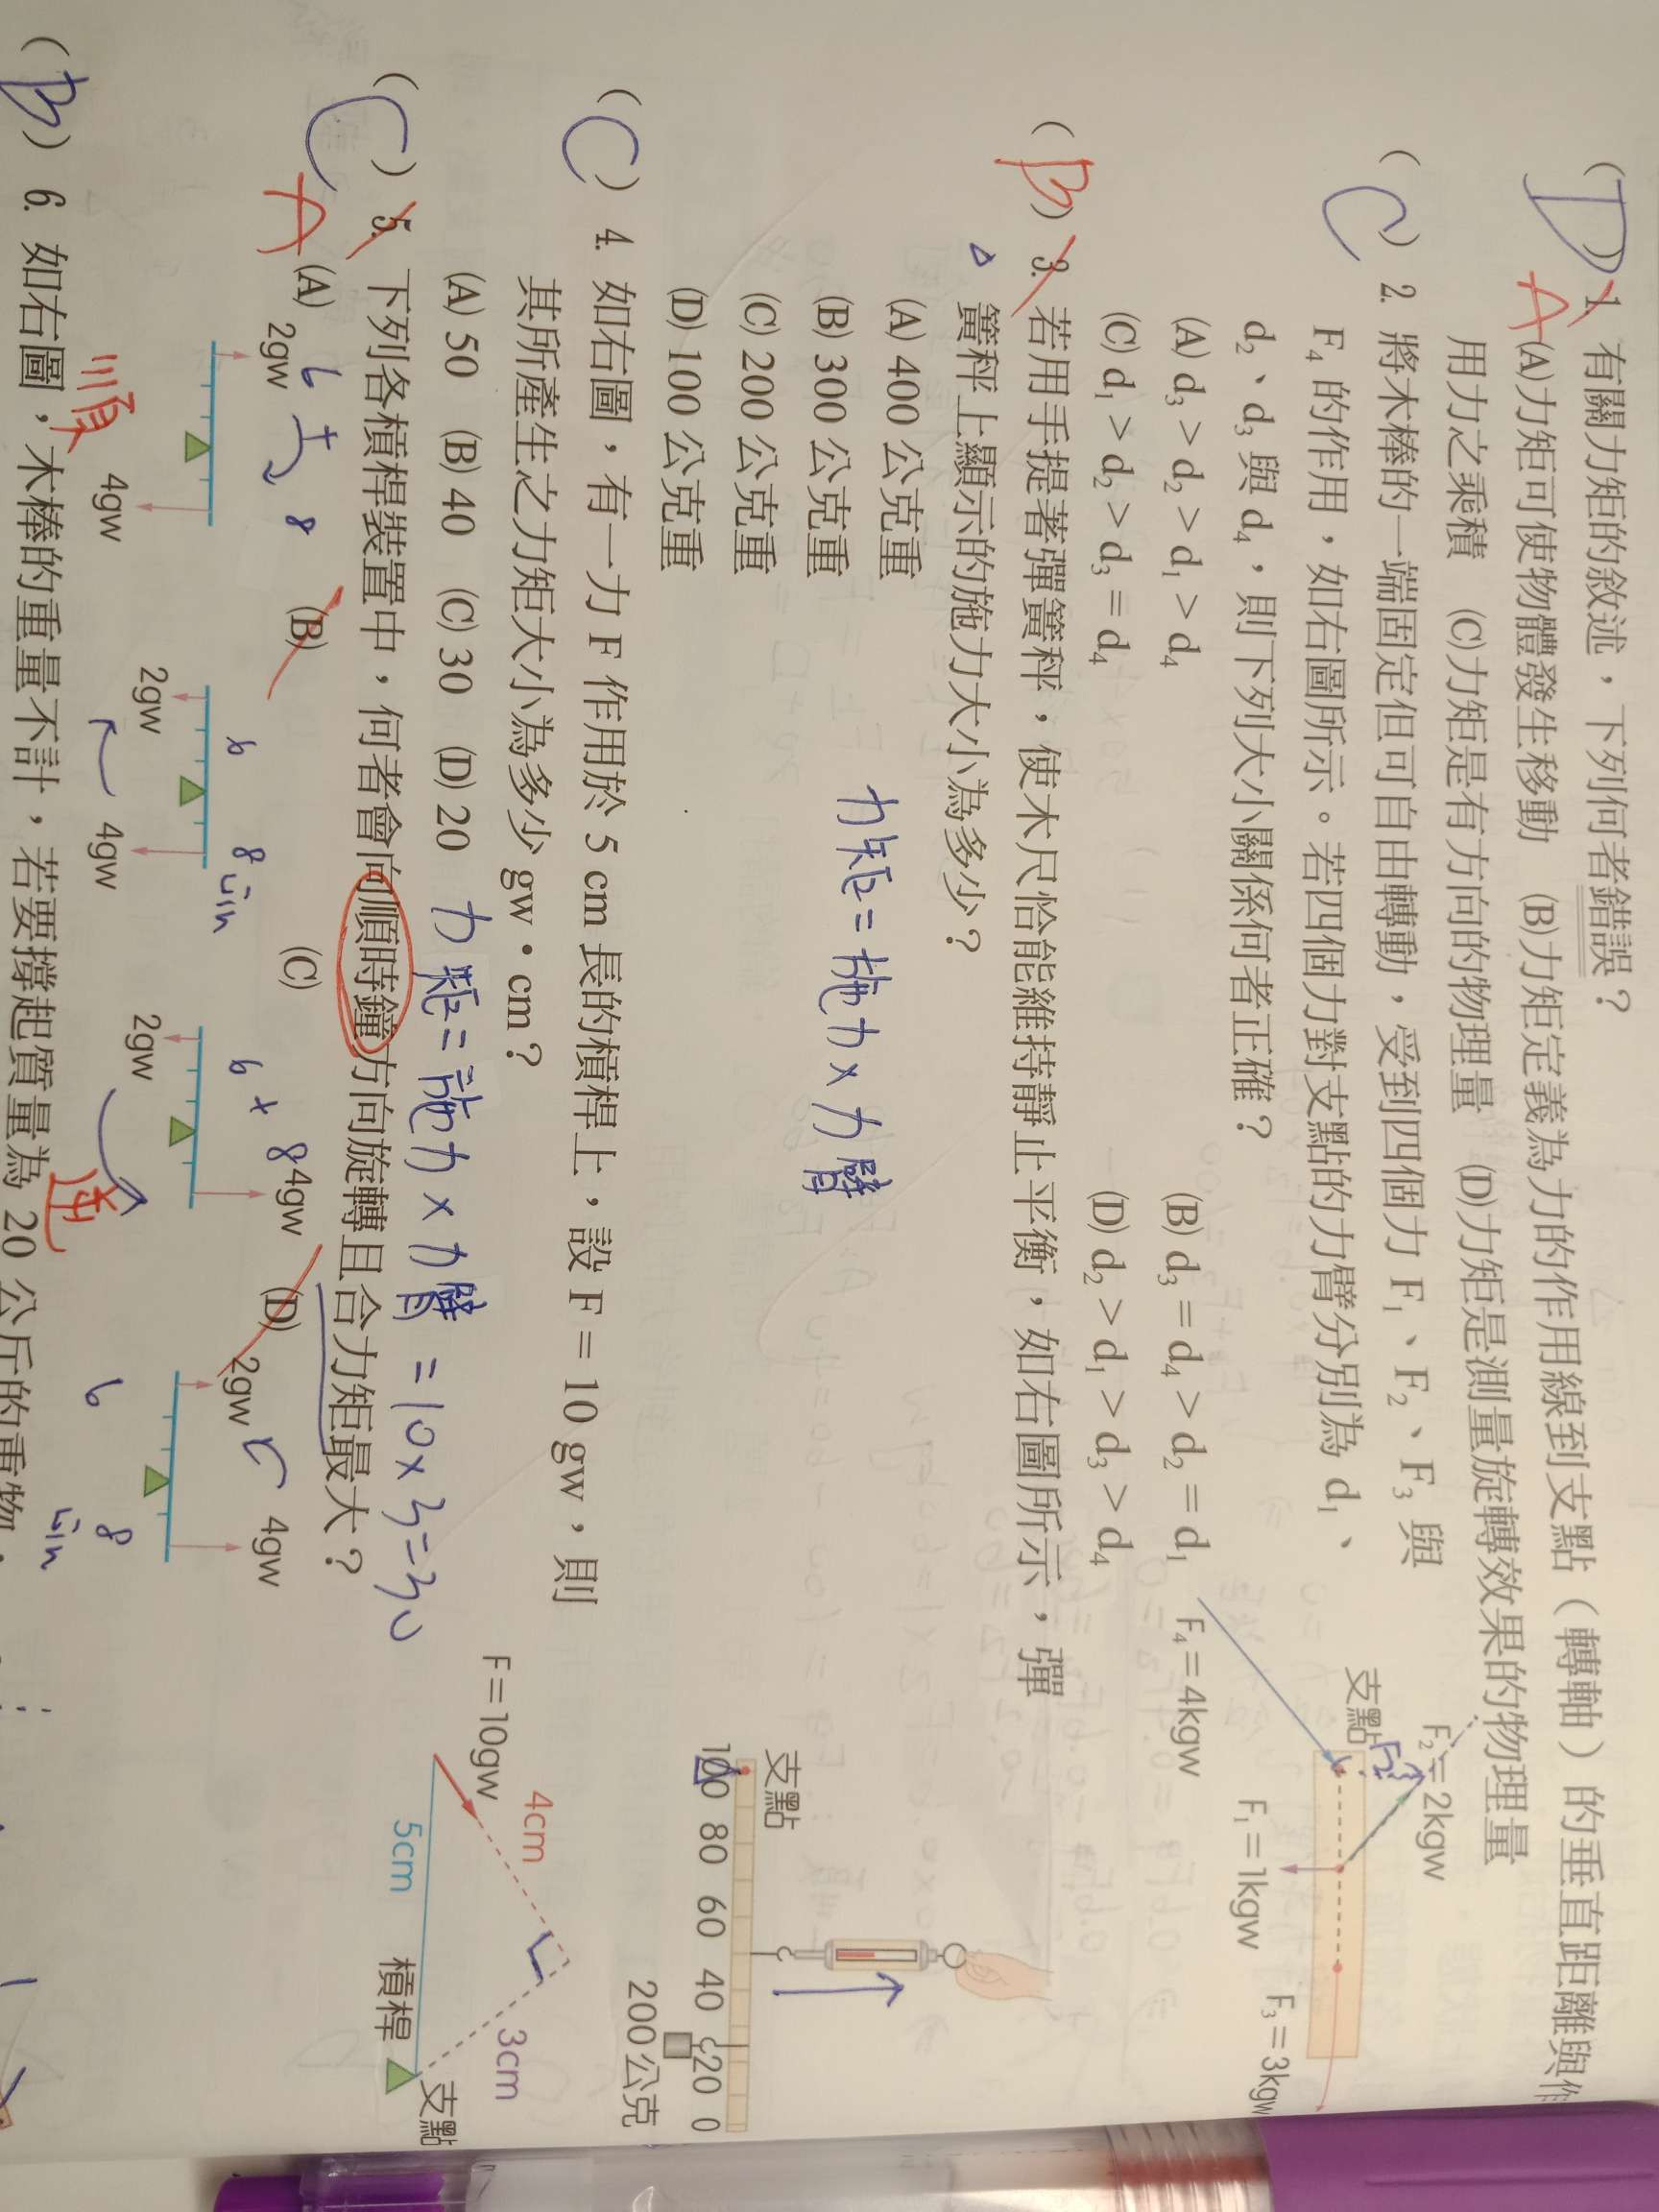 (D) 1. 有關力矩的敘述，下列何者錯誤？
A (A)力矩可使物體發生移動 (B)力矩定義為力的作用線到支點（轉軸）的垂直距離與作
用力之乘積 (C)力矩是有方向的物理量 (D)力矩是測量旋轉效果的物理量
(C) 2. 將木棒的一端固定但可自由轉動，受到四個力 F₁、F₂、F₃ 與
F₄ 的作用，如右圖所示。若四個力對支點的力臂分別為 d₁、
d₂、d₃ 與 d₄，則下列大小關係何者正確？
(A) d₃ > d₂ > d₁ > d₄ (B) d₃ = d₄ > d₂ = d₁
(C) d₁ > d₂ > d₃ = d₄ (D) d₂ > d₁ > d₃ > d₄
支點
F₂=2kgw
F₁=1kgw
F₃=3kgw
F₄=4kgw
(B) 3. 若用手提著彈簧秤，使木尺恰能維持靜止平衡，如右圖所示，彈
簧秤上顯示的施力大小為多少？
(A) 400 公克重
(B) 300 公克重
(C) 200 公克重
(D) 100 公克重
力矩=施力×力臂
支點
100 80 60 40 20 0
200公克
(C) 4. 如右圖，有一力 F 作用於 5 cm 長的槓桿上，設 F = 10 gw，則
其所產生之力矩大小為多少 gw・cm？
(A) 50 (B) 40 (C) 30 (D) 20
力矩=施力×力臂=10×3=30
F=10gw
4cm
3cm
5cm
槓桿
支點
(C) 5. 下列各槓桿裝置中，何者會向順時鐘方向旋轉且合力矩最大？
A (A) (B) (C) (D)
2gw 6 + 8 4gw
順
2gw 6 8 4gw
2gw 6 + 8 4gw
逆
2gw 6 8 4gw
(B) 6. 如右圖，木棒的重量不計，若要撐起質量為 20 公斤的重物，